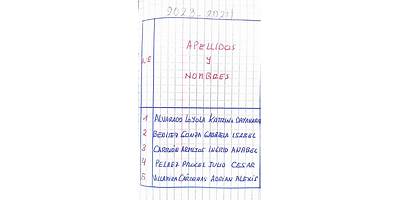 2023-2024
Nº
APELLIDOS
Y
NOMBRES
1 ALVARADO LOYOLA KATRINA DAYANARA
2 BENITEZ GONZA GABRIELA ISABEL
3 CARRIÓN ARMIJOS INGRID ANABEL
4 PELAEZ PAUCEL JULIO CESAR
5 VILLAVICA CÁRDENAS ADRIAN ALEXIS